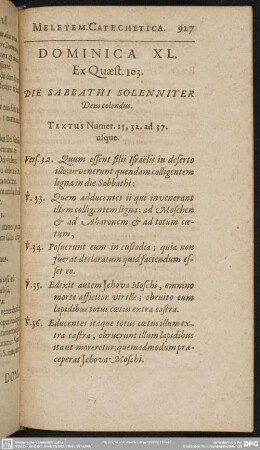 MELETEM. CATECHETICA. 927
DOMINICA XL.
Ex Quæst. 103.
DIE SABBATHI SOLENNITER
Deus colendus.
TEXTUS Numer. 15, 32. ad 37.
usque.
Vers. 32. Quum essent filii Israëlis in deserto
illo, invenerunt quendam colligentem
ligna in die Sabbathi:
℣. 33. Quem adducentes ii qui invenerant
illum colligentem ligna; ad Moschen
& ad Aharonem & ad totum cœ-
tum,
℣. 34. Posuerunt eum in custodia; quia non
fuerat declaratum quid faciendum es-
set eo.
℣. 35. Edixit autem Jehova Moschi, omnino
morte afficitor vir ille; obruito eum
lapidibus totus cœtus extra castra.
℣. 36. Educentes itaque totus cœtus illum ex-
tra castra, obruerunt illum lapidibus
ita ut moreretur; quemadmodum præ-
ceperat Jehova Moschi.
DO-